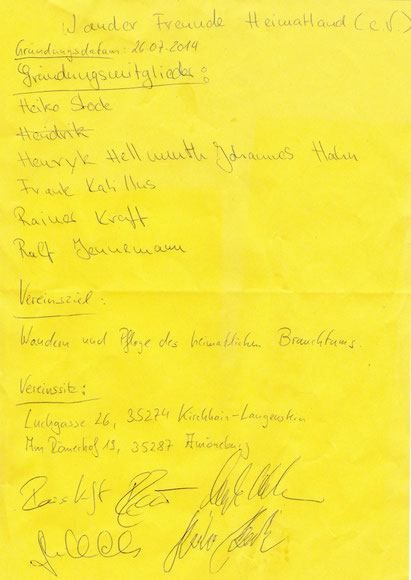 Wander Freunde Heimatland (e.V)
Gründungsdatum: 26.07.2014
Gründungsmitglieder:
Heiko Stode
Hendrik
Henryk Hellmuth Johannes Hahn
Frank Katillus
Rainer Kraft
Ralf Jennemann
Vereinsziel:
Wandern und Pflege des heimatlichen Brauchtums.
Vereinssitz:
Luchgasse 26, 35274 Kirchhain-Langenstein
Mm Römerhof 19, 35287 Amöneburg